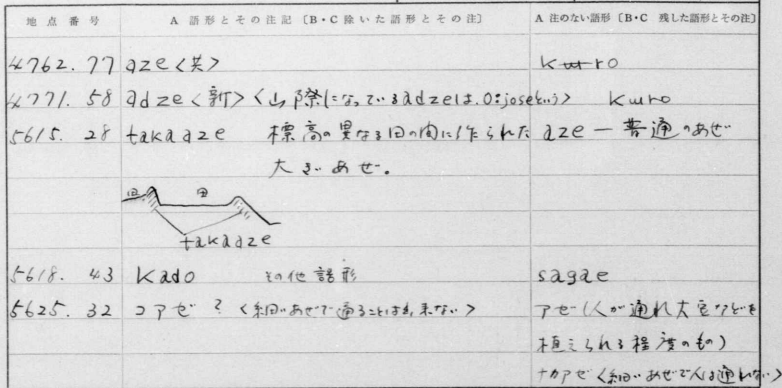 地点番号 A 語形とその注記〔B・C 除いた語形とその注〕 A 注のない語形〔B・C 残した語形とその注〕
4762. 77 aze〈共〉 kuro
4771. 58 adze〈新〉〈山際になっているadzeは、o:joseという〉 kuro
5615. 28 takaaze 標高の異なる田の間に作られた aze ー 普通のあぜ
大きいあぜ。
田 田
takaaze
5618. 43 kado その他語形 sagae
5625. 32 コアゼ ? 〈細いあぜで通ることは出来ない〉 アゼ(人が通れ大豆などを
植えられる程度のもの)
ナカアゼ〈細いあぜで人は通れない〉